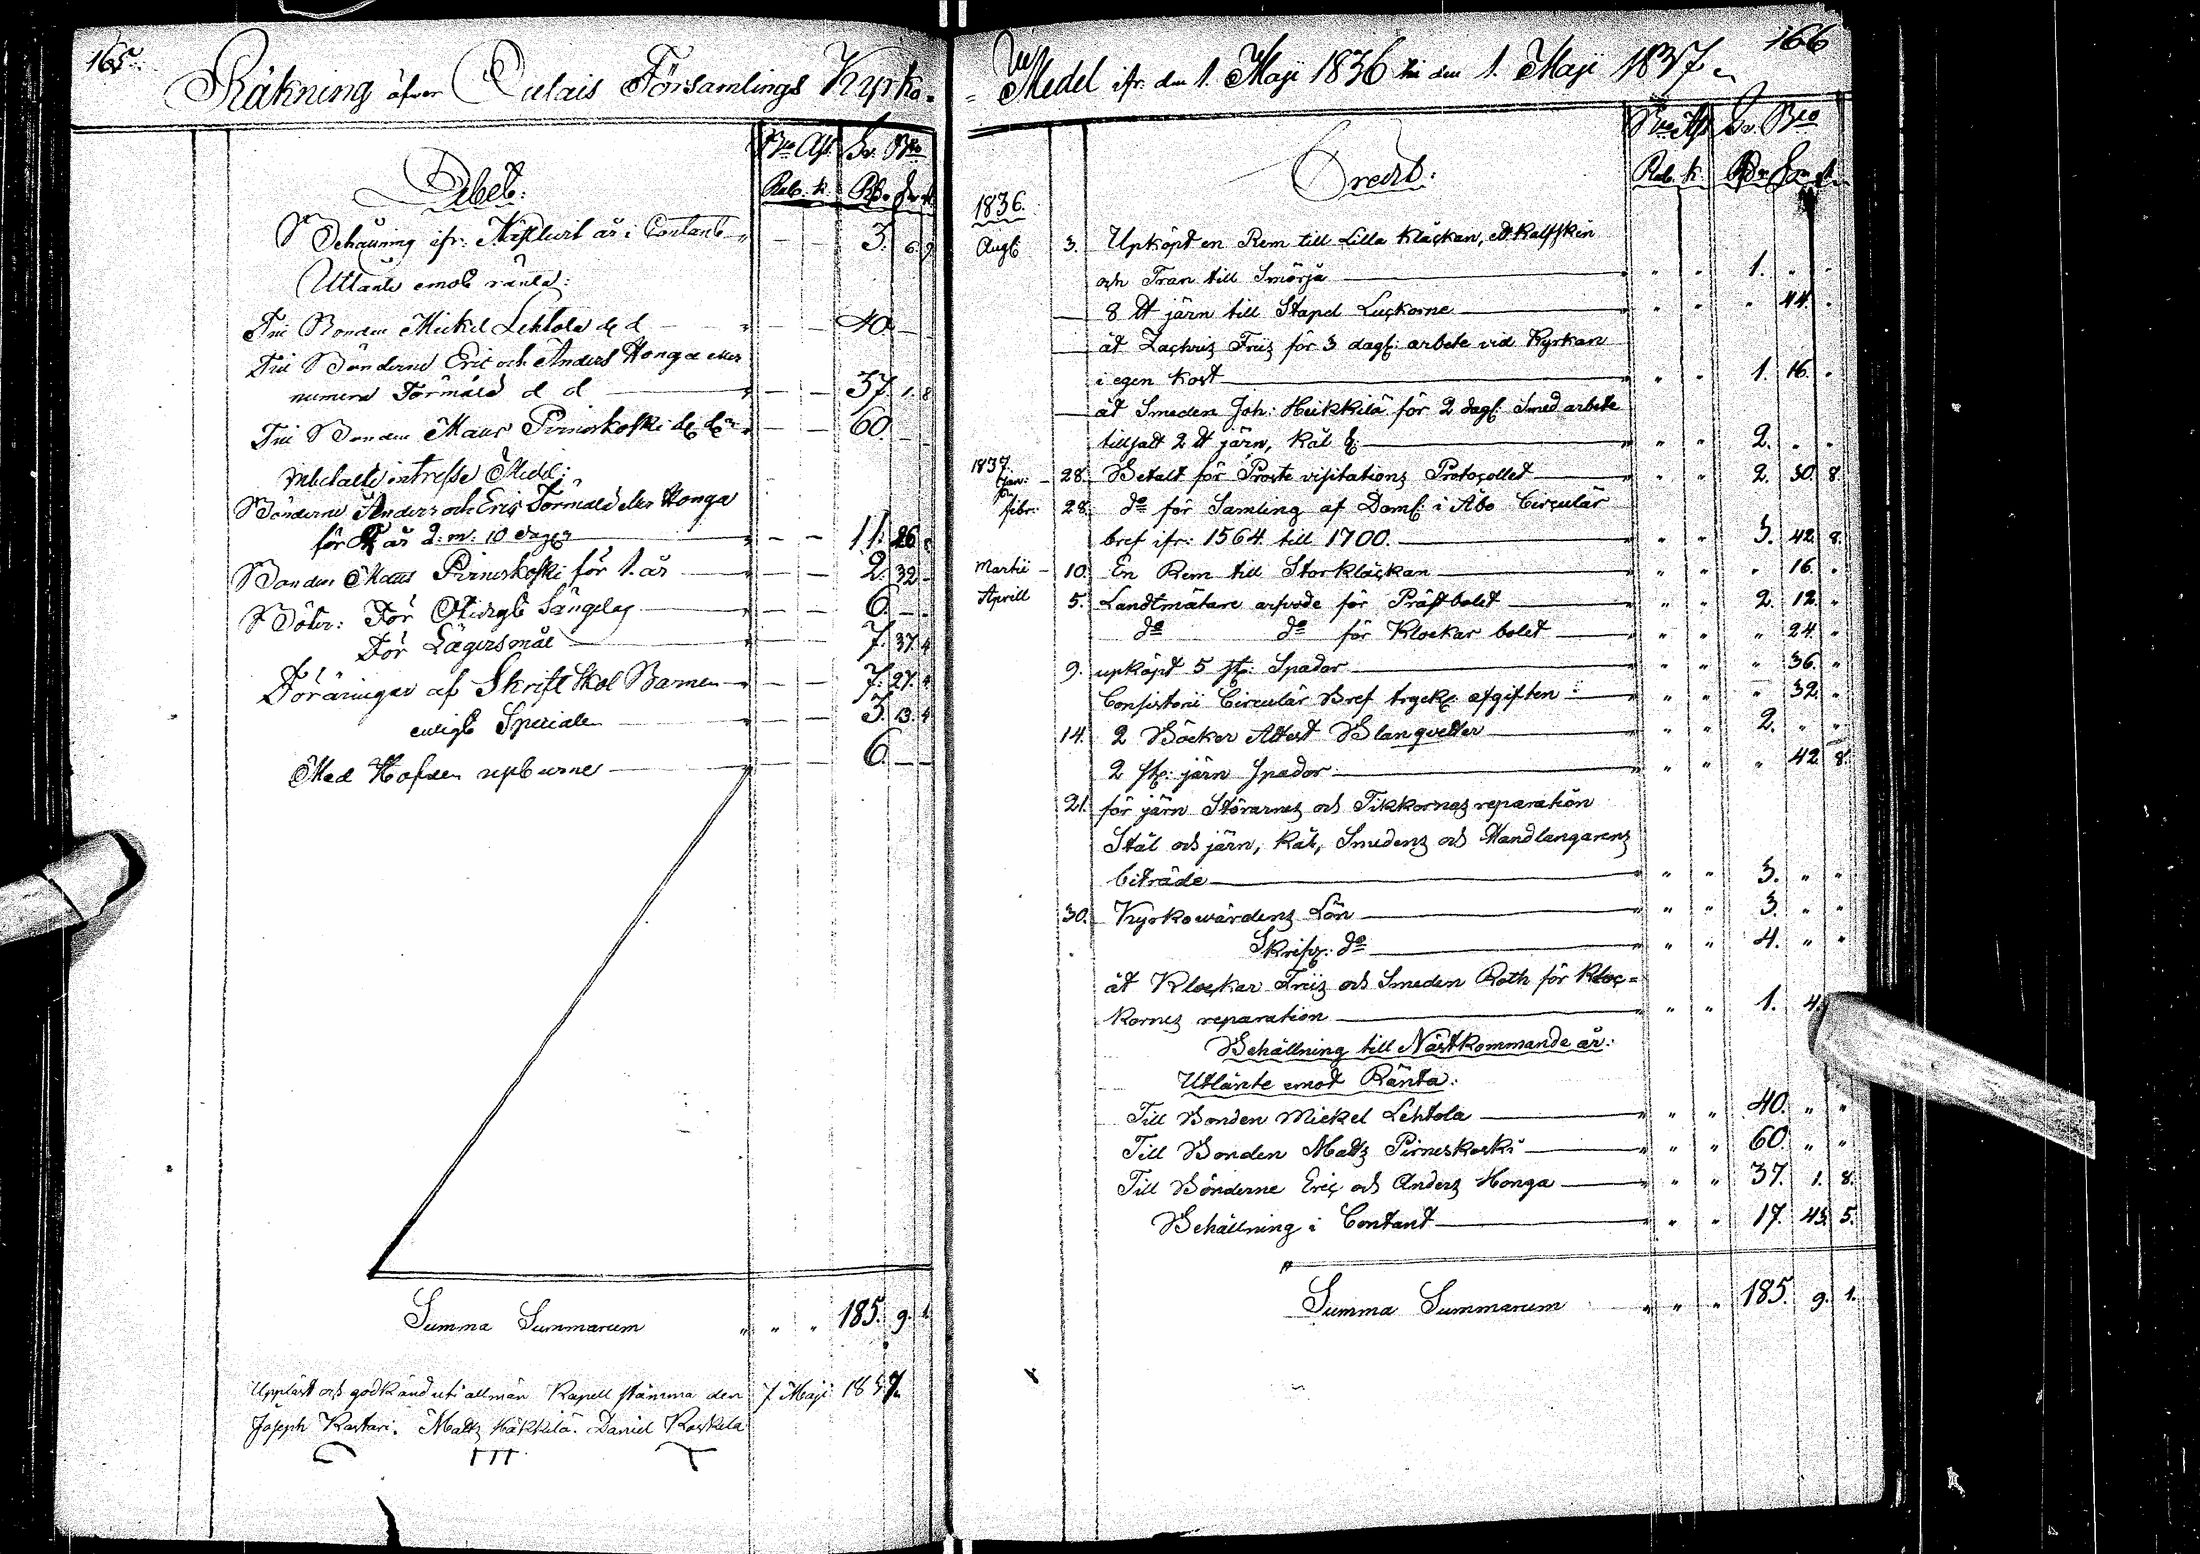 165.
Räkning öfver Oulais Församlings Kyrko-
B:co Ass. Sv. B:co
Debet:
Rub. k. Rd. s. r.
Behållning ifr: sistl. år i Contant " — — 3. 6. 9
Utlånte emot ränta:
Till Bonden Mickel Lehtola d. d. — " — — 40. —
Till Bönderne Eric och Anders Honga eller
numera Törmälä d d — " — — 37. 1. 8
Till Bonden Mats Pirneskoski — " — — 60. — —
Inbetalte intresse Medel:
Bönderne Anders och Eric Törmälä eller Honga
för år 2. m: 10 dagar — — — 11. 26.
Bonden Mats Pirneskoski för 1. år — — — 2. 32 —
Böter: För Otidigt Sängelag — — — 6. — —
För Lägersmål — — — 7. 37. 4
Föräringar af Skrift Skol Barnen — — — 7. 27. 4
enligt Speciale — " — — 3. 13. 4
Med Hofven upburne — — — 6. — —
Summa Summarum " " " 185. 9. 1.
Uppläst och godkänd uti allmän Kapell stämma den 7 Maji 1837.
Joseph Kastari. Matts Häkkilä. Daniel Koskela
166
Medel ifr. den 1. Maji 1836 till den 1. Maji 1837
B:co Ass Sv. B:co
Credit: Rub. k. Rdr s. r.
1836.
Augt 3. Upköpt en Rem till Lilla Klåckan, ett Kalfskin
och Tran till Smörja — " " 1. " "
8 ℔ järn till Stapel Luckorne — " " " 44. "
åt Zachris Friis för 3 dags: arbete vid Kyrkan
i egen kost — " " 1. 16. "
åt Smeden Joh: Heikkilä för 2 dags: Smed arbete
tillsatt 2 ℔ järn, kål &: — " " 2. " "
1837.
Jan: 28. Betalt för Proste visitations Protocollet — " " 2. 30. 8.
febr: 28. d:o för Samling af Domc: i Åbo Circulär
bref ifr: 1564. till 1700. — " " 3. 42. 8.
Martii 10. En Rem till Storklåckan — " " " 16. "
Aprill 5. Landtmätare arfvode för Prästbolet — " " 2. 12. "
d:o d:o för Klockar bolet — " " " 24. "
9. upköpt 5 st: Spador — " " " 36. "
Consistorii Circulär Bref tryck: afgiften — " " " 32. "
14. 2 Böcker Attest Blanqvetter — " " 2. " "
2 st: järn Spador — " " " 42. 8.
21. för järn Störarnes och Tikkornas reparation
Stål och järn, kål, Smedens och Handlangarens
biträde — " " 3. " "
30. Kyrkowärdens Lön — " " 3. " "
Skrifv: d:o — " " 4. " "
åt Klockar Friis och Smeden Roth för Kloc-
kornes reparation — " " 1. 4.
Behållning till Nästkommande år:
Utlånte emot Ränta:
Till Bonden Mickel Lehtola — " " 40. " "
Till Bonden Matts Pirneskoski — " " 60. " "
Till Bönderne Eric och Anders Honga — " " 37. 1. 8.
Behållning i Contant — " " 17. 43. 5.
Summa Summarum " " " 185. 9. 1.